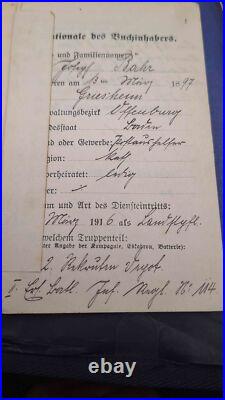 tionale des Buchinhabers.
und Familienname:
Josef Bahr
ren am 13 ten März 1897
Griesheim
waltungsbezirk Offenburg
desstaat Baden
d oder Gewerbe: Postaushelfer
gion kath
rheiratet: ledig
er: /
um und Art des Diensteintritts:
März 1916 als Landstpfl.
welchem Truppenteil:
ter Angabe der Kompagnie, Eskadron, Batterie):
2. Rekruten Depot
I. Ers. Batl. Inf. Regt. No 114
Watermarks.co.uk